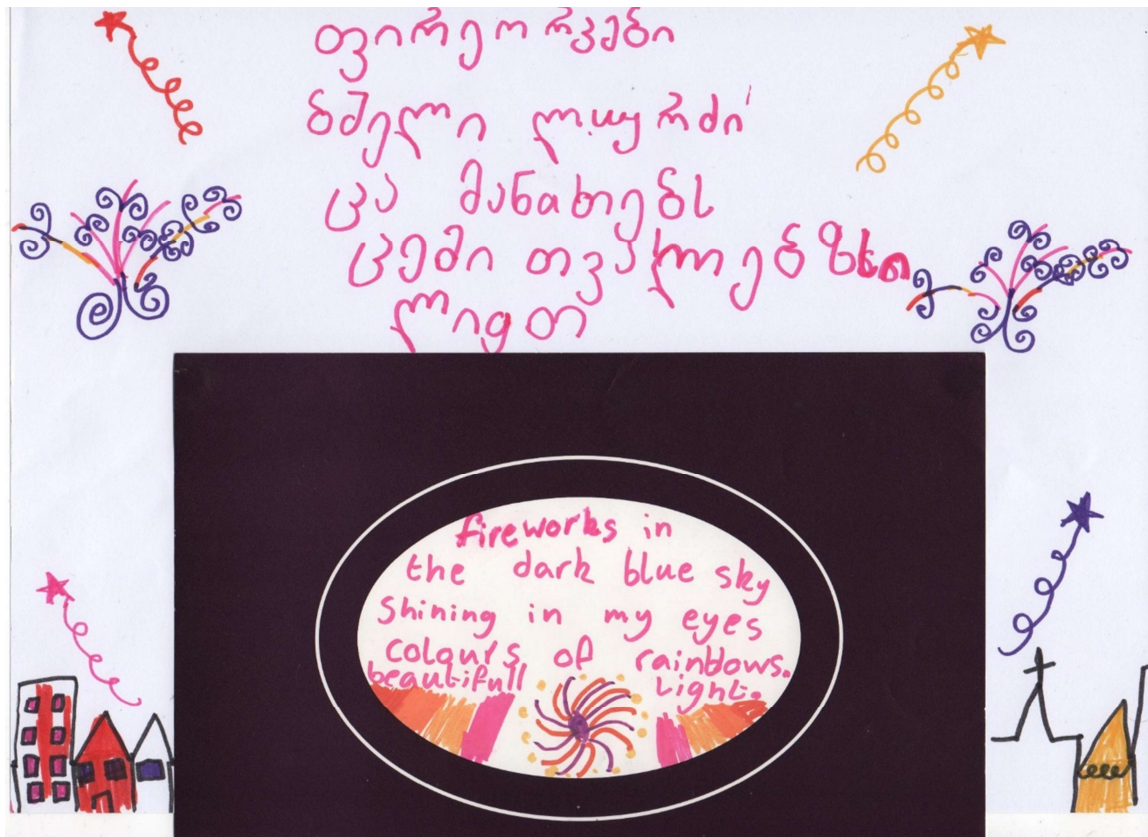 ბმელი
ცა მანათებს
ცემი თვალებ
fireworks in
the dark blue sky
shining in my eyes
colours of rainbows.
beautifull light.